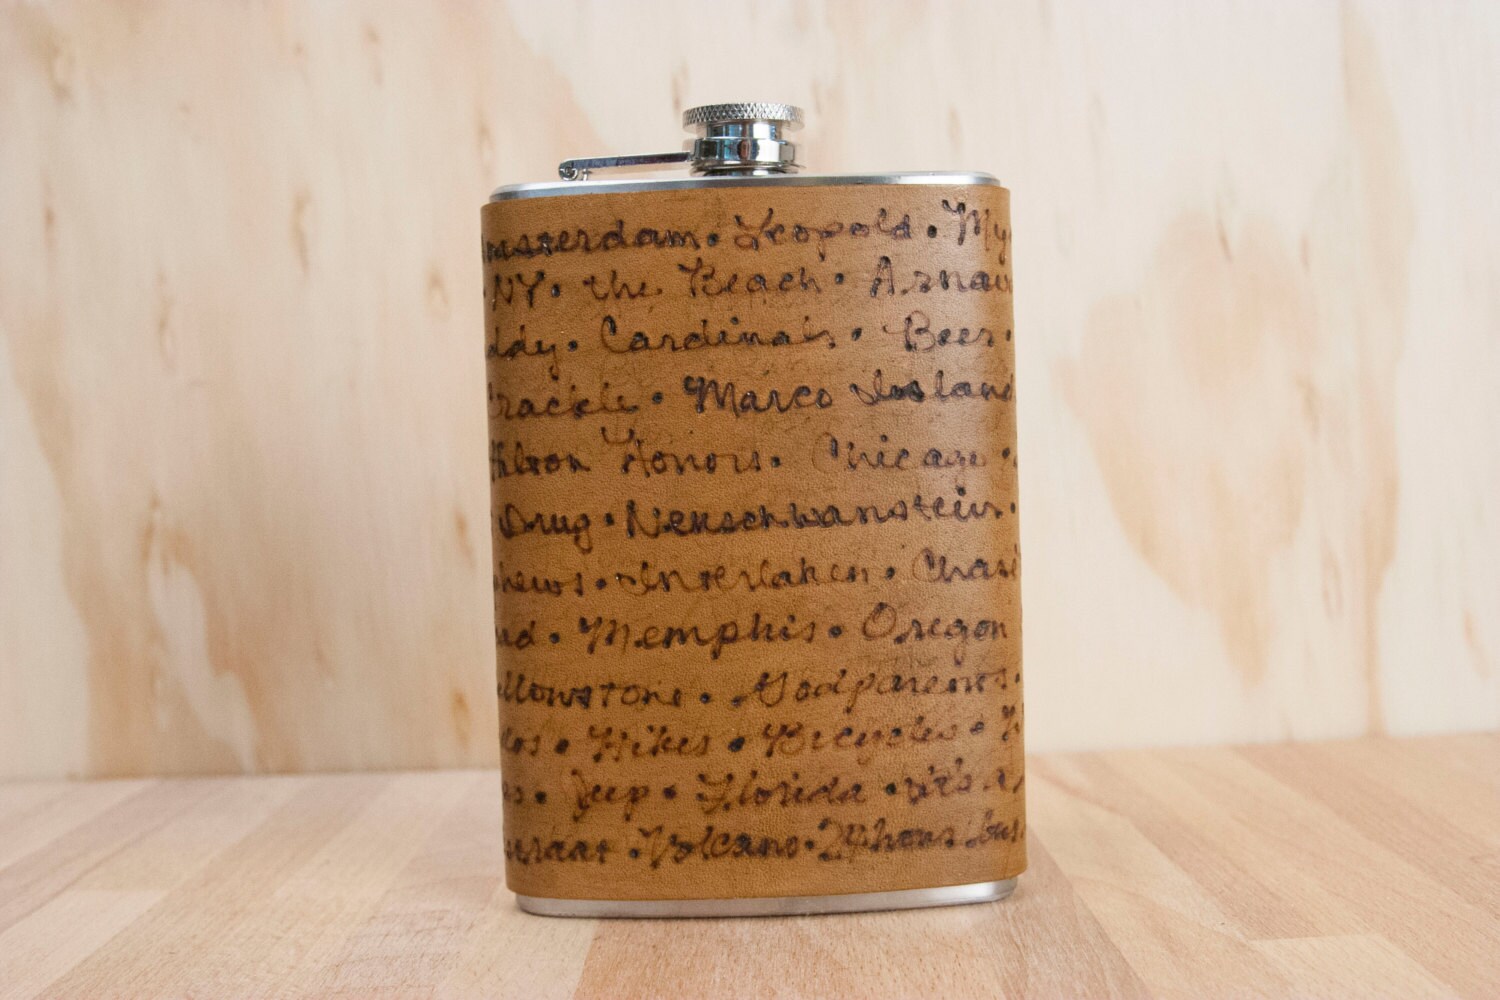 msterdam • Leopold • My
• NY • the Beach • Arnau
ddy • Cardinals • Bees •
Crackle • Marco Island
Honors • Chicago •
Drug • Nenschwanstein •
phews • Interlaken • Chasi
• Memphis • Oregon
ellowstone • Godparents •
los • Hikes • Bicycles •
es • Jeep • Florida • it's a
• Volcano • 24 hour bus